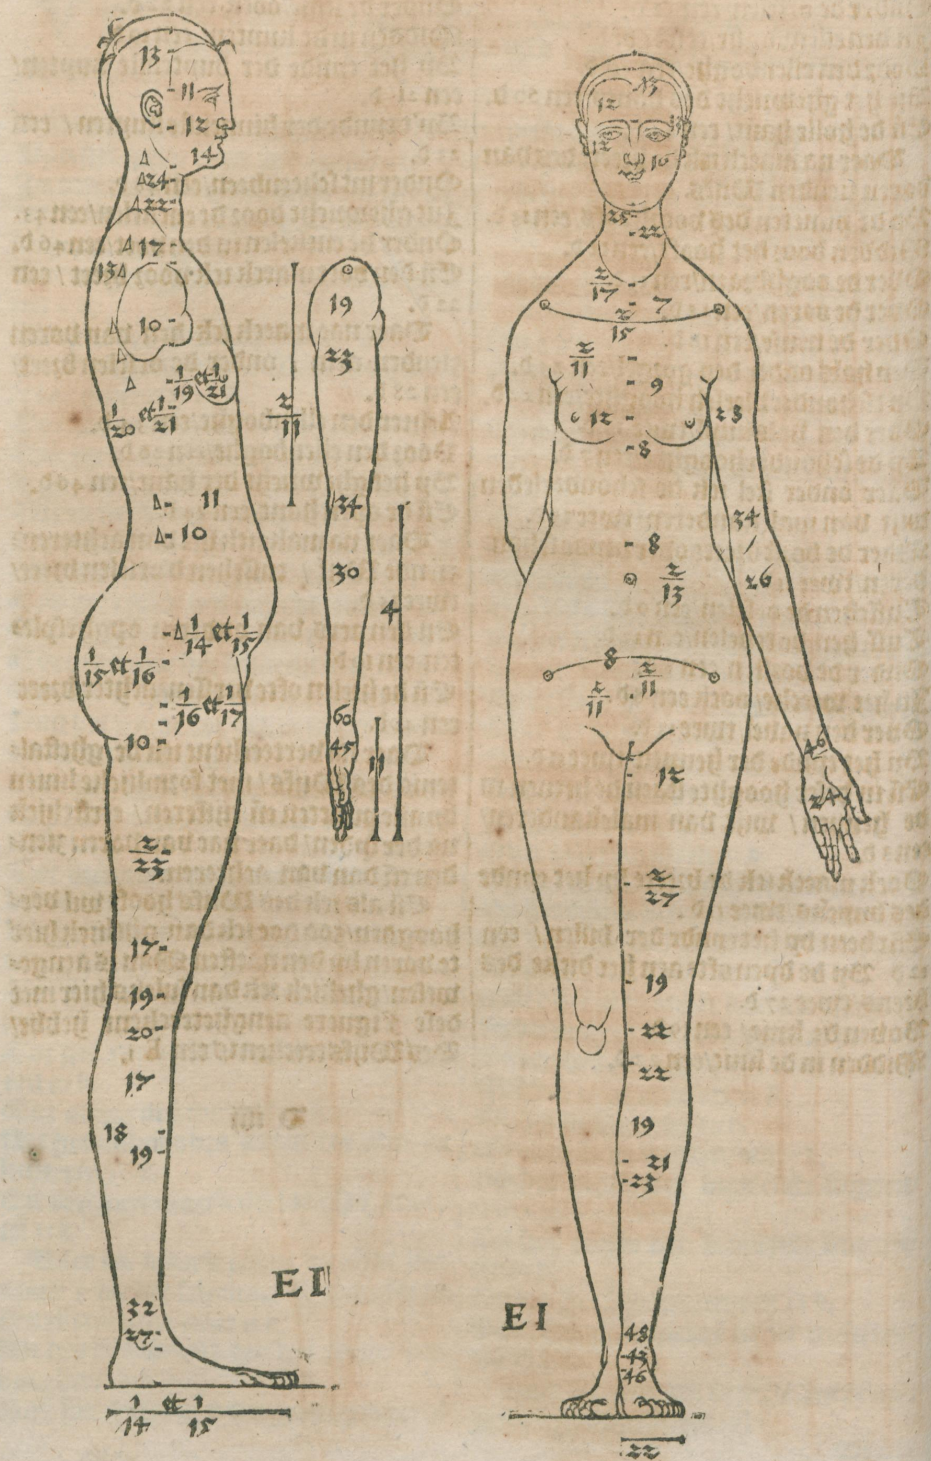 13
11
12
14
24
22
17
13
10
1/19 et 1/21
1/20 et 1/21
11
10
1/14 et 1/15
1/15 et 1/16
1/16 et 1/17
10
2/23
17
19
20
17
18
19
32
27
1/14 et 1/15
EI
19
23
2/11
34
30
4
60
45
11
13
12
12
16
25
22
2/17
7
2/15
2/11
9
12
23
8
34
8
26
2/13
8
2/11
2/11
40
24
12
2/27
19
22
22
19
21
23
EI
48
43
46
22